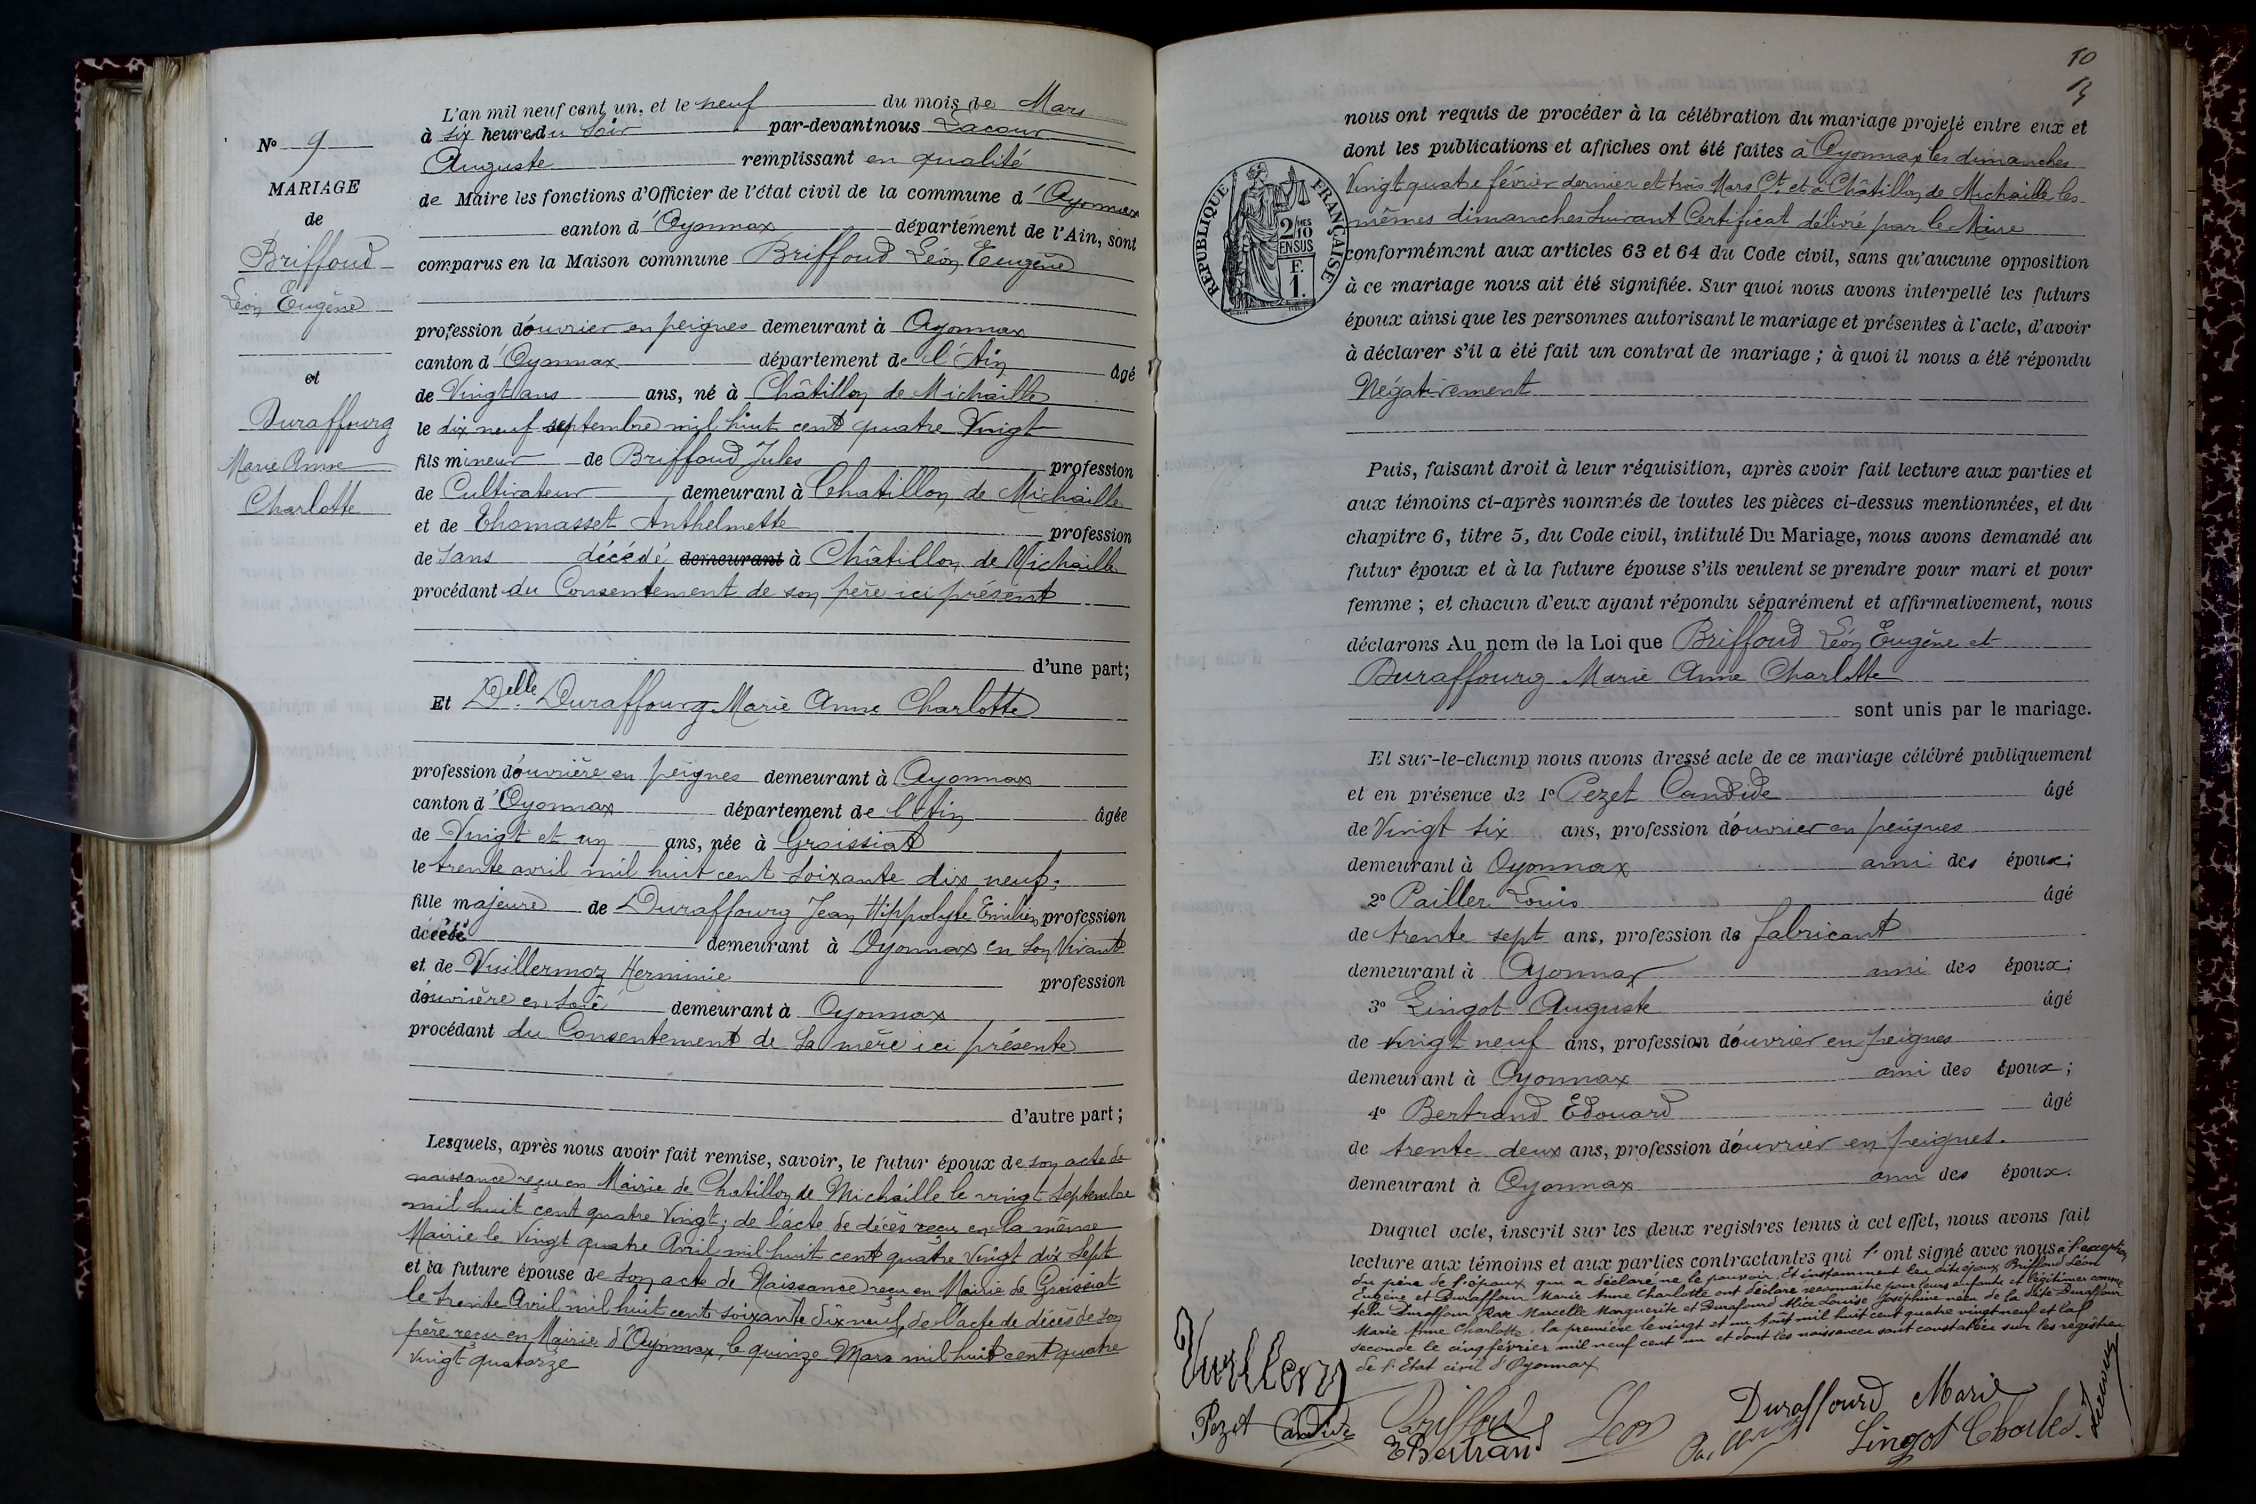 L'an mil neuf cent un, et le neuf du mois de Mars
à six heures du soir par-devant nous Lacour
Auguste remplissant en qualité
de Maire les fonctions d'Officier de l'état civil de la commune d'Oyonnax
canton d'Oyonnax département de l'Ain, sont
comparus en la Maison commune Briffoud Léon Eugène
profession d'ouvrier en peignes demeurant à Oyonnax
canton d'Oyonnax département de l'Ain âgé
de Vingt ans ans, né à Châtillon de Michaille
le dix neuf septembre mil huit cent quatre Vingt
fils mineur de Briffoud Jules profession
de Cultivateur demeurant à Chatillon de Michaille
et de Thomasset Anthelmette profession
de sans décédé demeurant à Châtillon de Michaille
procédant du Consentement de son père ici présent
d'une part;
Et Delle Duraffourg Marie Anne Charlotte
profession d'ouvrière en peignes demeurant à Oyonnax
canton d'Oyonnax département de l'Ain âgée
de Vingt et un ans, née à Groissiat
le trente avril mil huit cent soixante dix neuf;
fille majeure de Duraffourg Jean Hippolyte Emilien profession
décédé demeurant à Oyonnax en son Vivant
et de Vuillermoz Herminie profession
d'ouvrière en soie demeurant à Oyonnax
procédant du Consentement de sa mère ici présente
d'autre part;
Lesquels, après nous avoir fait remise, savoir, le futur époux de son acte de
naissance reçu en Mairie de Chatillon de Michaille le vingt septembre
mil huit cent quatre vingt; de l'acte de décès reçu en la même
Mairie le Vingt quatre Avril mil huit cent quatre vingt dix sept
et la future épouse de son acte de Naissance reçu en Mairie de Groissiat
le trente Avril mil huit cent soixante dix neuf, de l'acte de décès de son
père reçu en Mairie d'Oyonnax le quinze Mars mil huit cent quatre
vingt quatorze
No 9
MARIAGE
de
Briffoud
Léon Eugène
et
Duraffourg
Marie Anne
Charlotte
10
nous ont requis de procéder à la célébration du mariage projeté entre eux et
dont les publications et affiches ont été faites à Oyonnax les dimanches
Vingt quatre février dernier et trois Mars Ct et à Châtillon de Michaille les
mêmes dimanches suivant Certificat délivré par le Maire
conformément aux articles 63 et 64 du Code civil, sans qu'aucune opposition
à ce mariage nous ait été signifiée. Sur quoi nous avons interpellé les futurs
époux ainsi que les personnes autorisant le mariage et présentes à l'acte, d'avoir
à déclarer s'il a été fait un contrat de mariage; à quoi il nous a été répondu
Négativement
RÉPUBLIQUE FRANÇAISE
2/10 EN SUS
F. 1.
Puis, faisant droit à leur réquisition, après avoir fait lecture aux parties et
aux témoins ci-après nommés de toutes les pièces ci-dessus mentionnées, et du
chapitre 6, titre 5, du Code civil, intitulé Du Mariage, nous avons demandé au
futur époux et à la future épouse s'ils veulent se prendre pour mari et pour
femme; et chacun d'eux ayant répondu séparément et affirmativement, nous
déclarons Au nom de la Loi que Briffoud Léon Eugène et
Duraffourg Marie Anne Charlotte
sont unis par le mariage.
Et sur-le-champ nous avons dressé acte de ce mariage célébré publiquement
et en présence de 1º Pezet Candide âgé
de Vingt six ans, profession d'ouvrier en peignes
demeurant à Oyonnax ami des époux;
2º Pailler Louis âgé
de trente sept ans, profession de fabricant
demeurant à Oyonnax ami des époux;
3º Lingot Auguste âgé
de vingt neuf ans, profession d'ouvrier en peignes
demeurant à Oyonnax ami des époux;
4º Bertrand Edouard âgé
de trente deux ans, profession d'ouvrier en peignes.
demeurant à Oyonnax ami des époux.
Duquel acte, inscrit sur les deux registres tenus à cet effet, nous avons fait
lecture aux témoins et aux parties contractantes qui l'ont signé avec nous à l'exception
du père de l'époux qui a déclaré ne le pouvoir. Et instamment les dits époux Briffoud Léon
Eugène et Duraffour Marie Anne Charlotte ont déclaré reconnaître pour leurs enfants et légitimer comme
tels Duraffour Rose Marcelle Marguerite et Durafourd Alice Louise Joséphine nées de la dite Duraffour
Marie Anne Charlotte, la première le vingt et un Août mil huit cent quatre vingt neuf et la
seconde le cinq février mil neuf cent un et dont les naissances sont constatées sur les registres
de l'Etat civil d'Oyonnax
Pezet Candide Briffoud Léon Duraffourd Marie
E Bertrand Pailler Lingot Charles